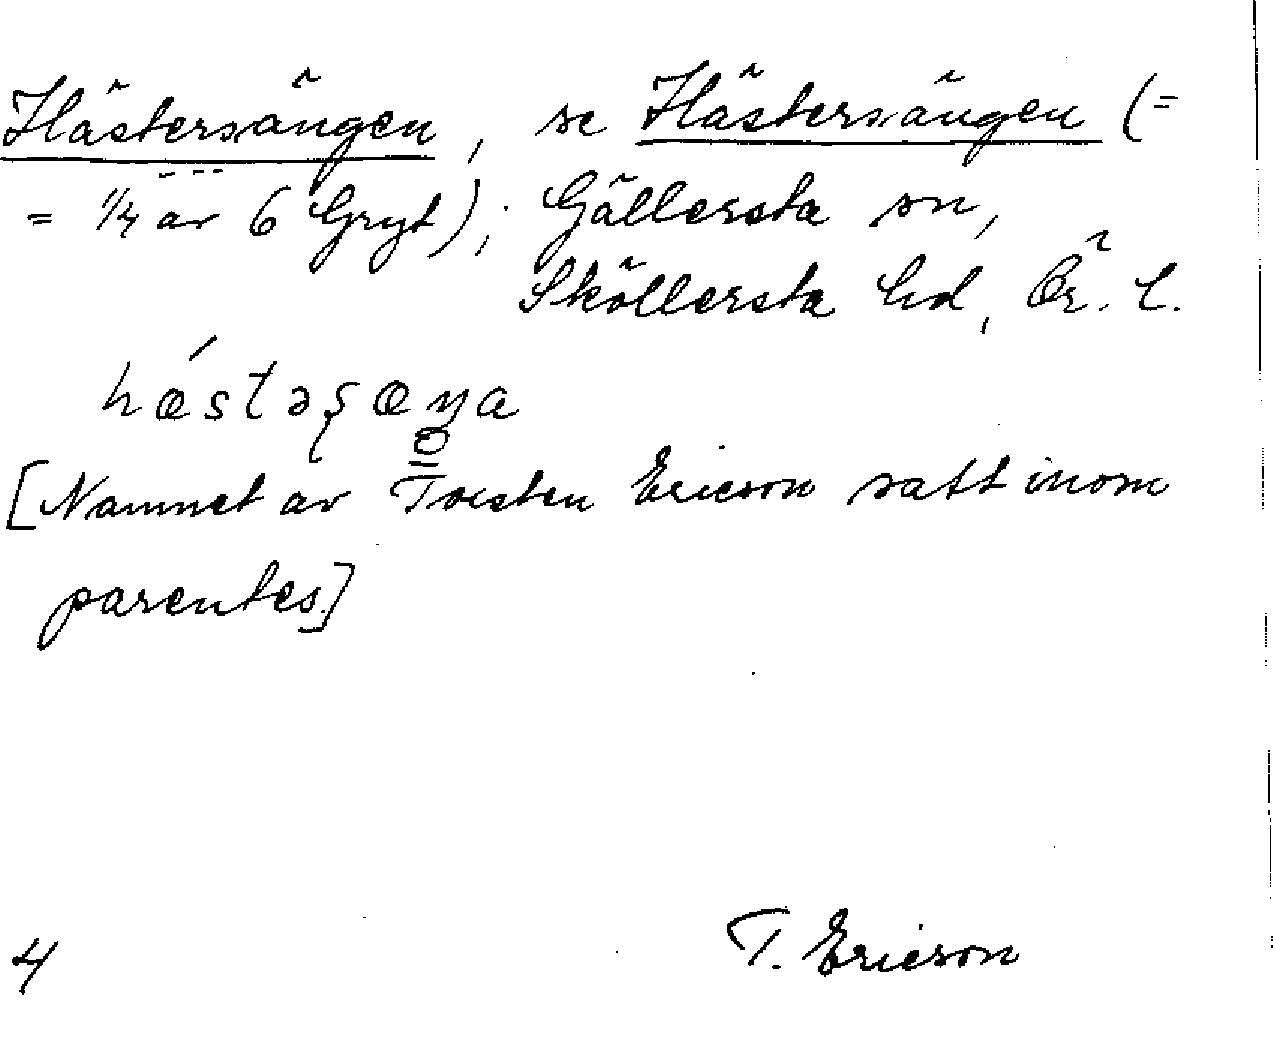 Hästersängen, se Hästersängen (=
= 1/4 av 6 Gryt); Gällersta sn,
Sköllersta hd, Ör. l.
hǽstəʂæŋa
[Namnet av Torsten Ericson satt inom
parentes]
4 T. Ericson